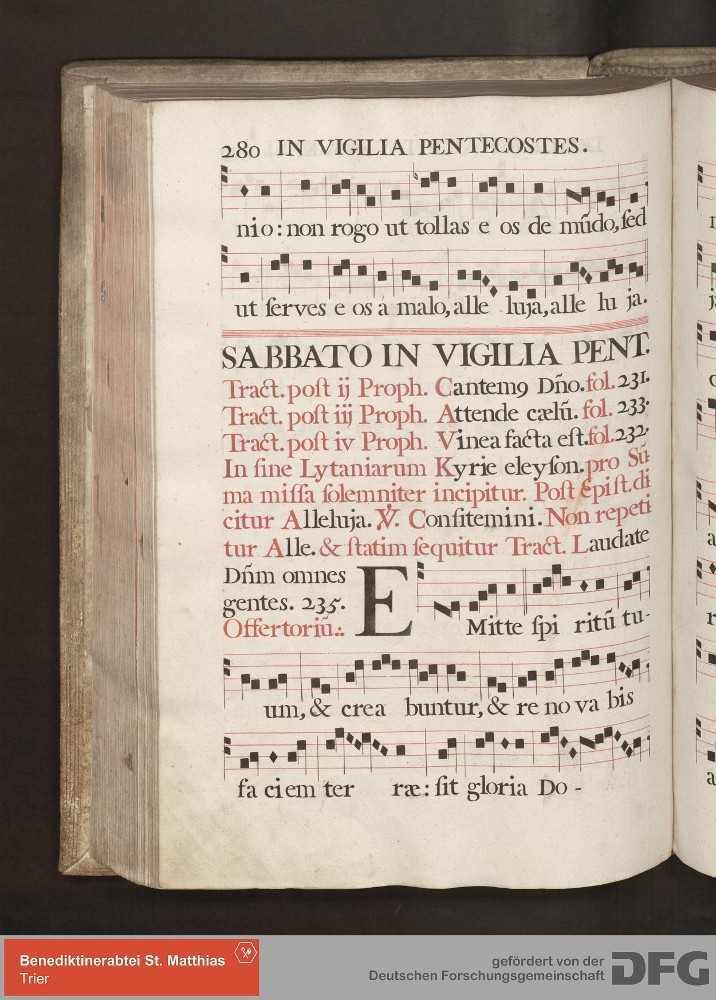 280 IN VIGILIA PENTECOSTES.
nio: non rogo ut tollas e os de mũdo, ſed
ut ſerves e os á malo, alle luja, alle lu ja.
SABBATO IN VIGILIA PENT.
Tract. poſt ij Proph. Cantem9 Dño. fol. 231.
Tract. poſt iij Proph. Attende cælũ. fol. 233.
Tract. poſt iv Proph. Vinea facta eſt. fol. 232.
In fine Lytaniarum Kyrie eleyſon. pro Sũ-
ma miſſa ſolemniter incipitur. Poſt Epiſt. di
citur Alleluja. ℣. Confitemini. Non repeti
tur Alle. & ſtatim ſequitur Tract. Laudate
Dñm omnes
gentes. 235.
Offertoriũ.
E Mitte ſpi ritũ tu-
um, & crea buntur, & re no va bis
fa ciem ter ræ: ſit gloria Do -
Benediktinerabtei St. Matthias
Trier
gefördert von der
Deutschen Forschungsgemeinschaft
DFG